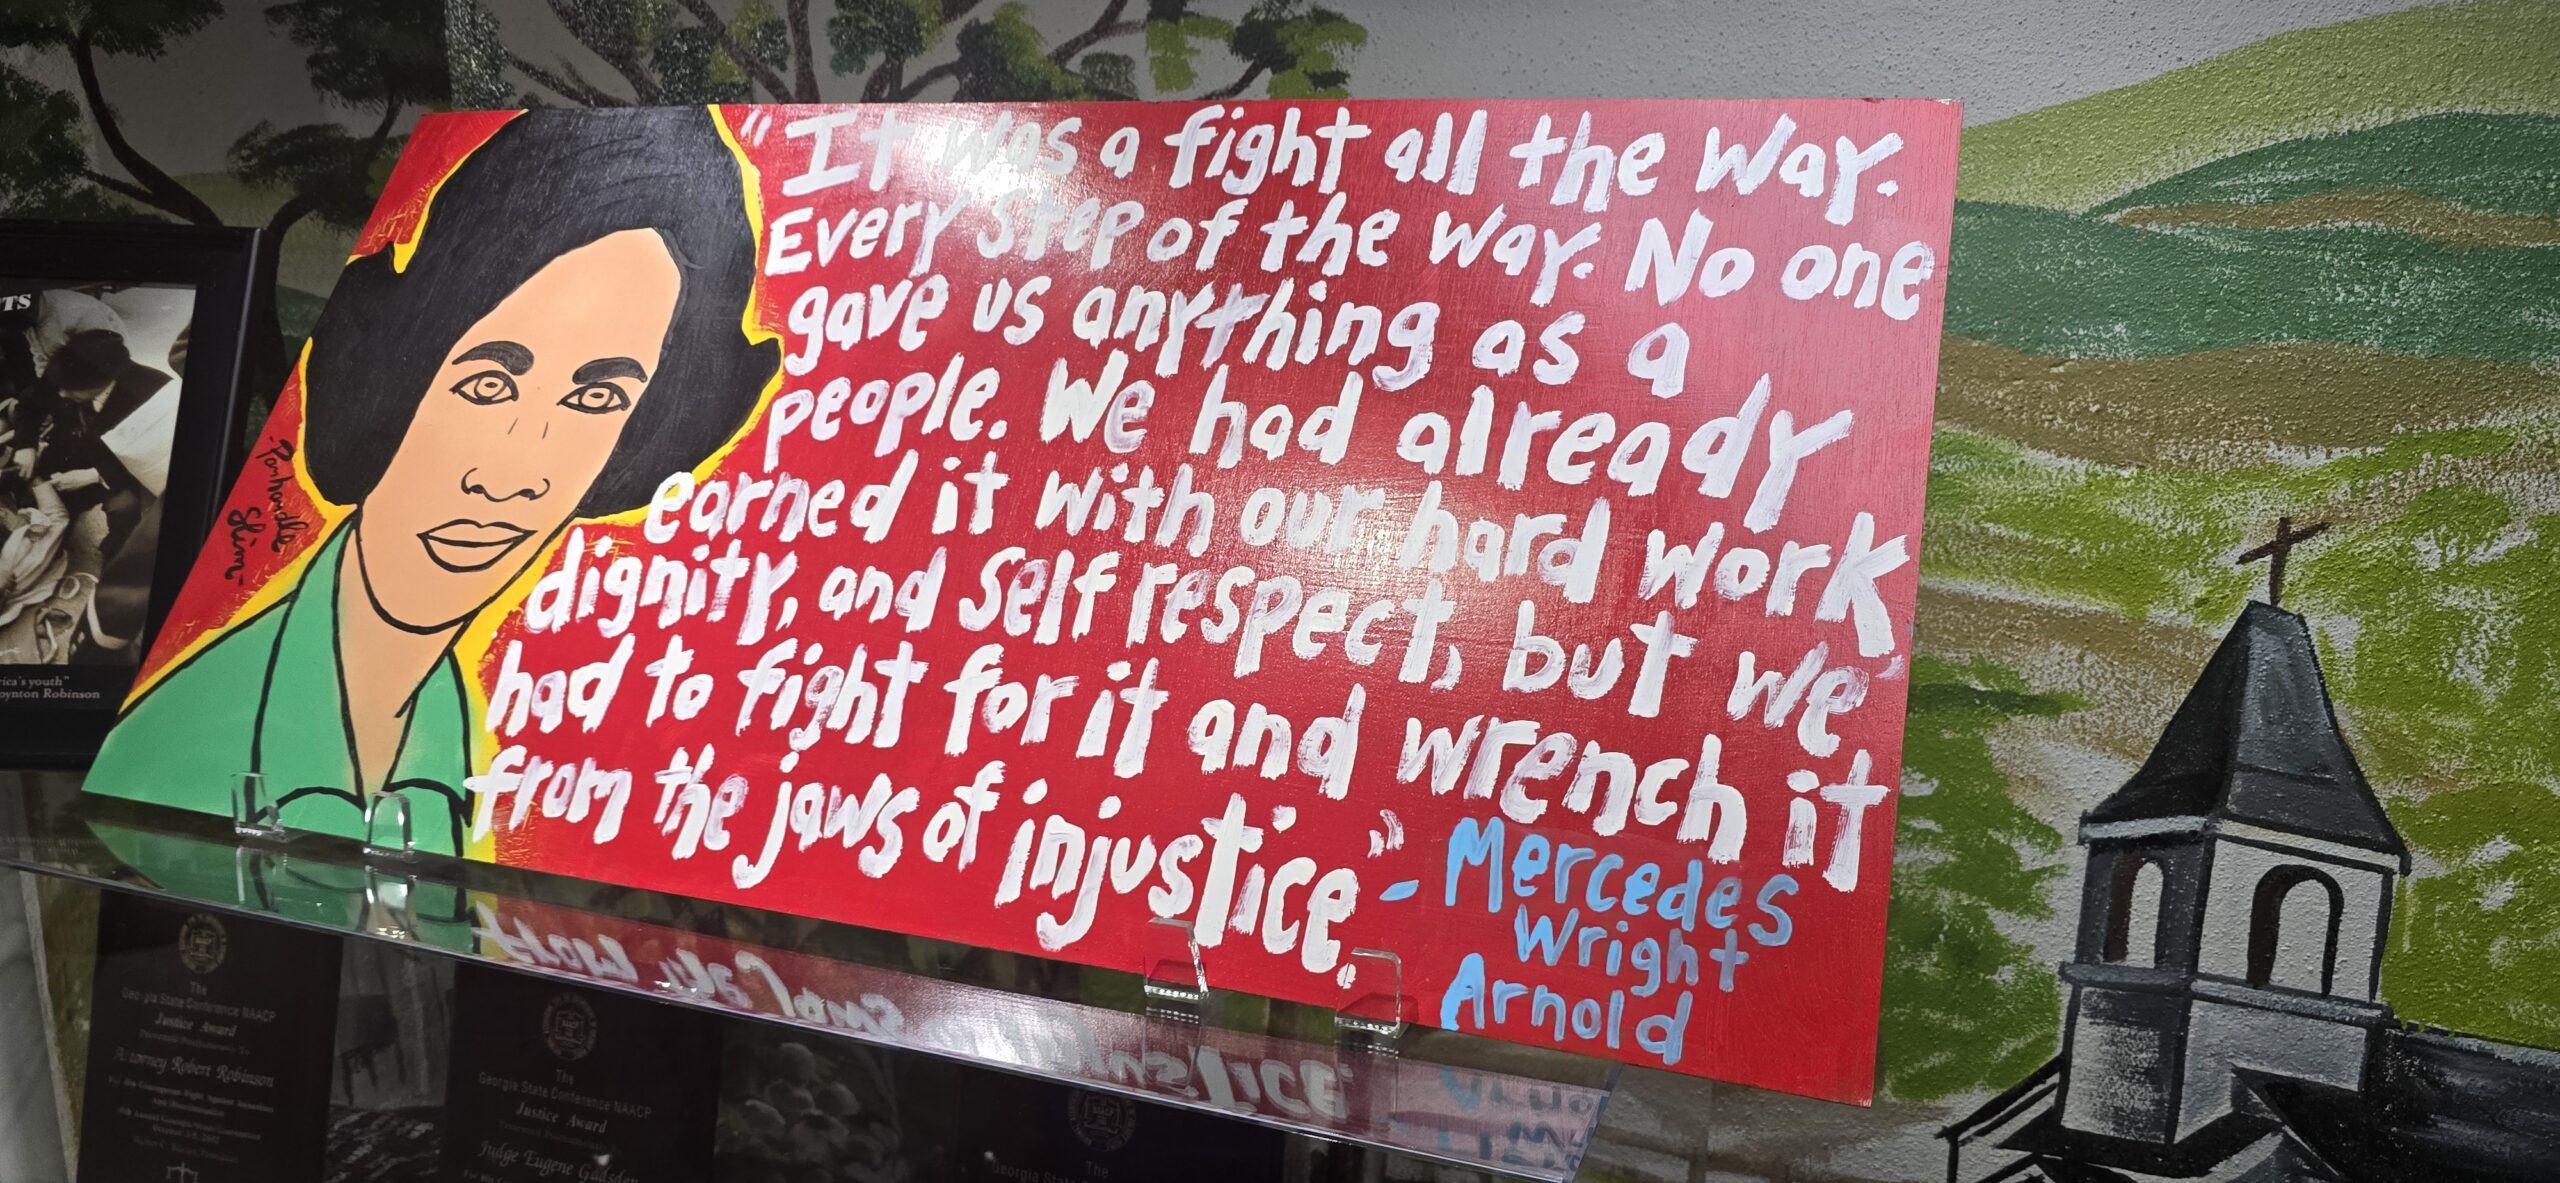 "It was a fight all the way.
Every step of the way. No one
gave us anything as a
people. We had already
earned it with our hard work
dignity, and self respect, but we
had to fight for it and wrench it
from the jaws of injustice."
- Mercedes
Wright
Arnold
-Panhandle
Slim-
TS
rica's youth"
oynton Robinson
The
Georgia State Conference NAACP
Justice Award
Attorney Robert Robinson
The
Georgia State Conference NAACP
Justice Award
Judge Eugene Gadsden
The
Georgia State Conference NAACP